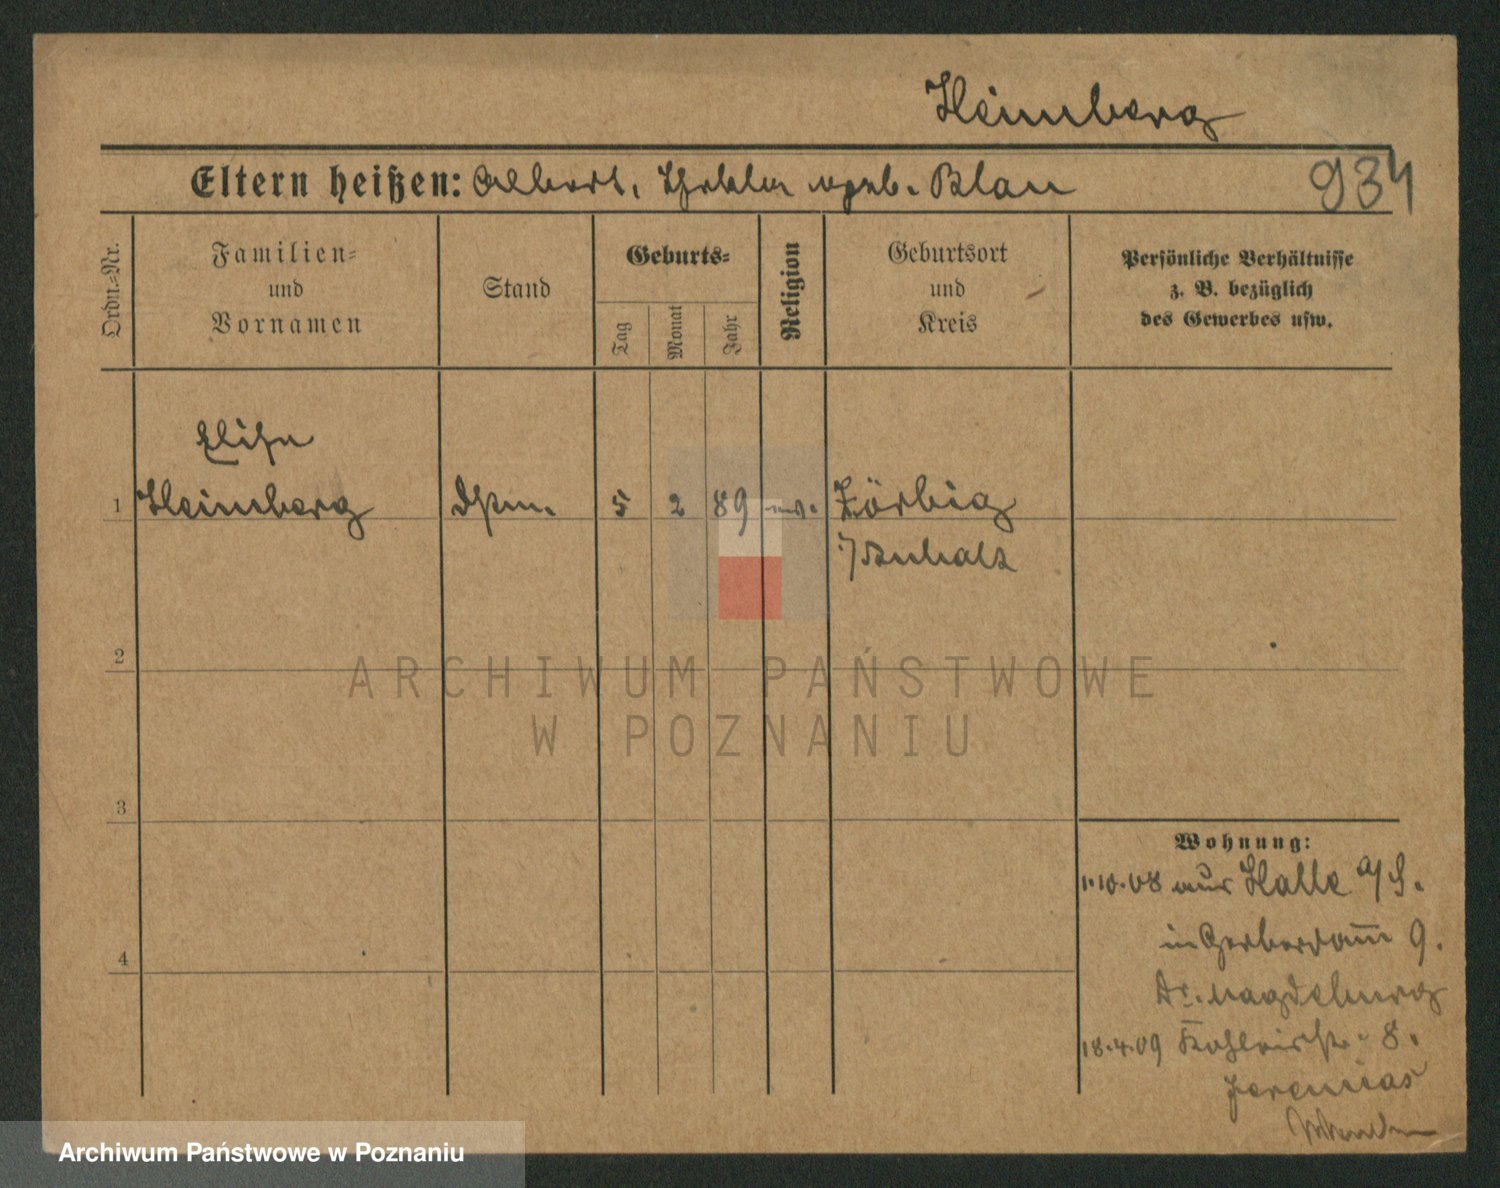 Heimberg
Eltern heißen: Albert, Thekla geb. Blau
934
Ordn.-Nr.
Familien-
und
Vornamen
Stand
Geburts-
Tag
Monat
Jahr
Religion
Geburtsort
und
Kreis
Persönliche Verhältnisse
z. B. bezüglich
des Gewerbes usw.
Elise
1 Heimberg 5 2 89 Zörbig
Anhalt
2
3
4
ARCHIWUM PAŃSTWOWE
W POZNANIU
Wohnung:
1.10.08 aus Halle a/S.
in Gerberdamm 9.
Dr. Magdeburg
18.4.09 8.
Jeremias
Archiwum Państwowe w Poznaniu